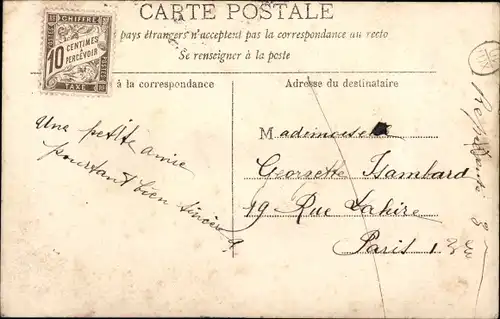 CARTE POSTALE
pays étrangers n'acceptent pas la correspondance au recto
Se renseigner à la poste
POSTES
CHIFFRE
10 CENTIMES À PERCEVOIR
TAXE
à la correspondance
Adresse du destinataire
Une petite amie
pourtant bien sincère
Mademoiselle
Georgette Isambard
19 Rue Lahire
Paris 13